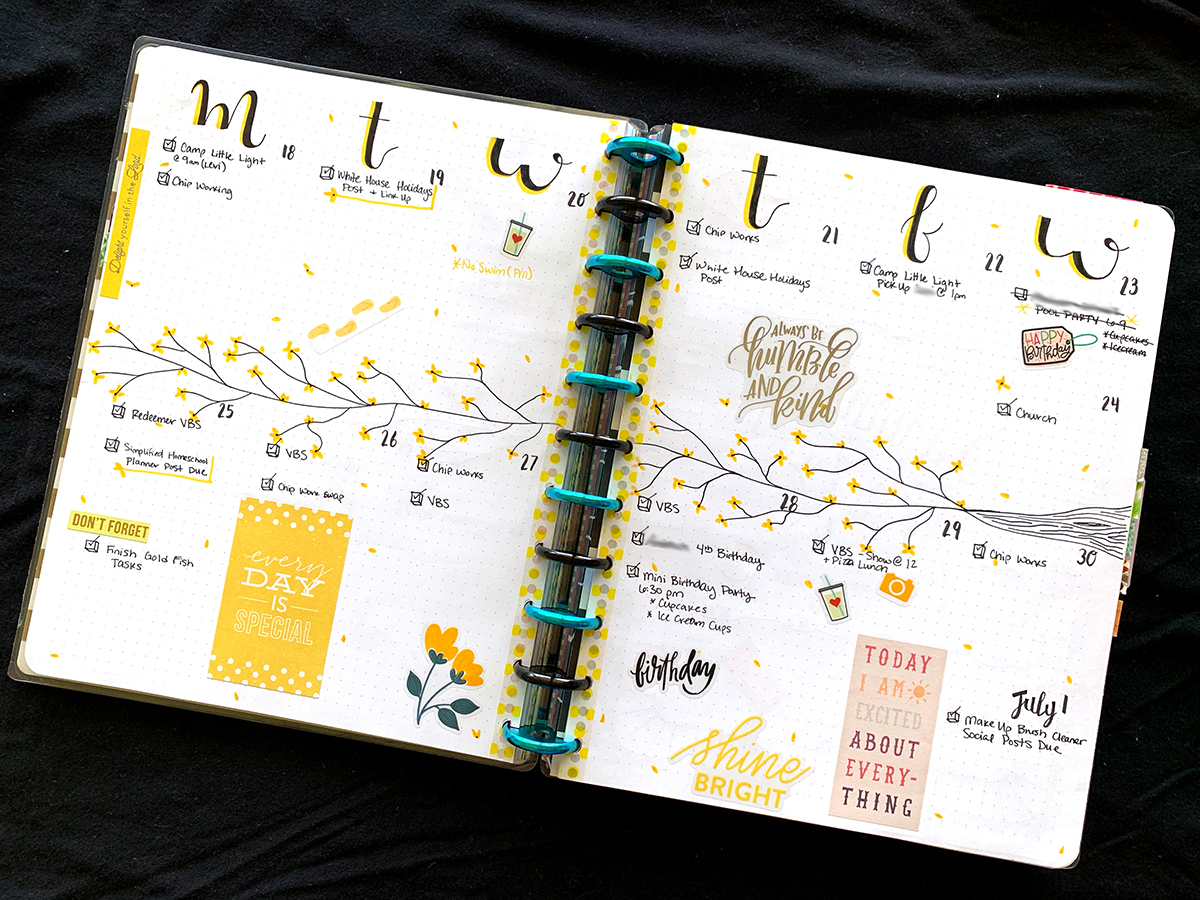 m
t
w
t
f
w
Delight yourself in the Lord.
18
Camp Little Light
@ 9am (Levi)
Chip Working
19
White House Holidays
Post + Link Up
20
*No Swim (All)
21
Chip Works
White House Holidays
Post
22
Camp Little Light
Pick Up @ 1pm
23
POOL PARTY 6-9
*Cupcakes
*Icecream
HAPPY
Birthday
24
Church
ALWAYS BE
humble
AND
kind
25
Redeemer VBS
Simplified Homeschool
Planner Post Due
DON'T FORGET
Finish Gold Fish
Tasks
26
VBS
Chip Work Swap
every
DAY
IS
SPECIAL
27
Chip Works
VBS
28
VBS
4th Birthday
Mini Birthday Party
6:30 pm
* Cupcakes
* Ice Cream Cups
birthday
shine
BRIGHT
29
VBS - Show @ 12
+ Pizza Lunch
TODAY
I AM
EXCITED
ABOUT
EVERY-
THING
30
Chip Works
July 1
Make Up Brush Cleaner
Social Posts Due